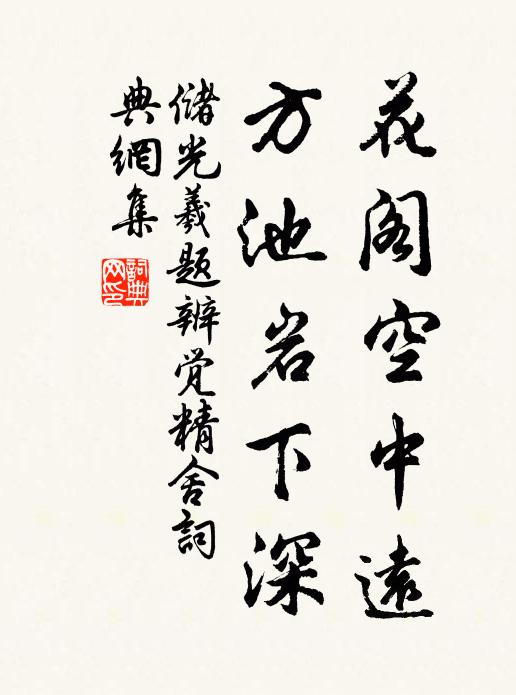 花阁空中遠
方池岩下深
储光羲题辨觉精舍詞
典網集
詞典
网印